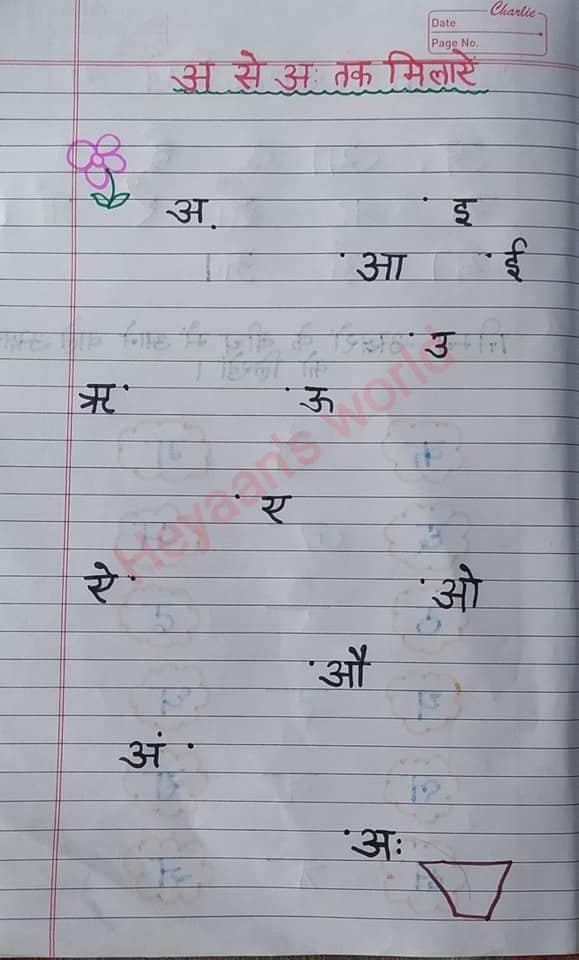 Charlie
Date
Page No.
अ से अः तक मिलाऐं
अ इ
आ ई
उ
ऋ ऊ
ए
ऐ ओ
औ
अं
अः
Heyaan's world